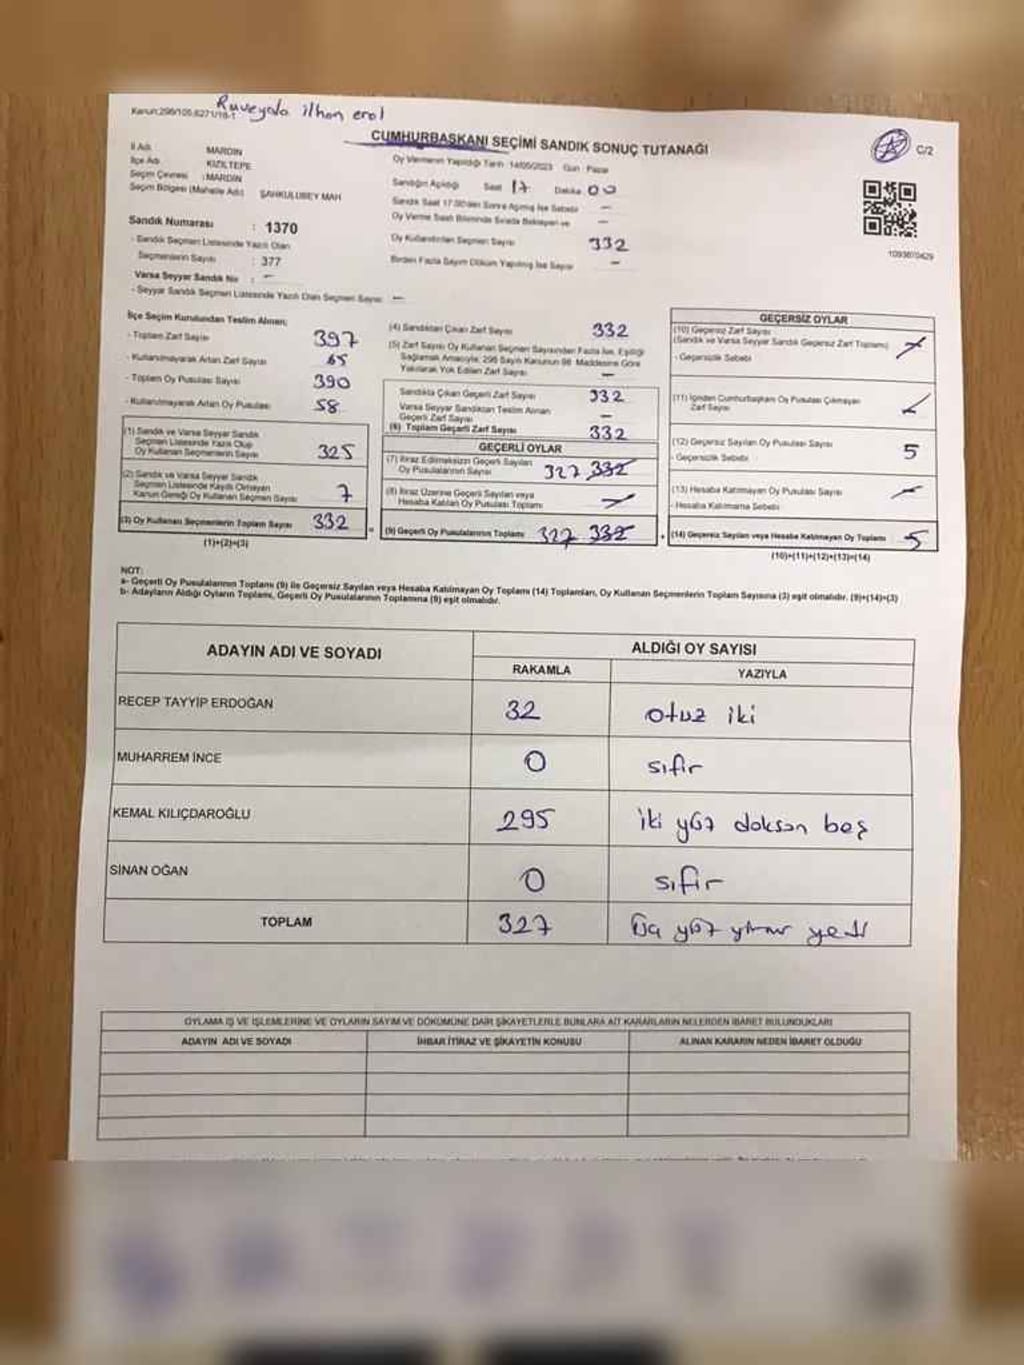 Kanun:298/105,6271/18-1
Ruveyda ilhan erol
CUMHURBAŞKANI SEÇİMİ SANDIK SONUÇ TUTANAĞI
C/2
İl Adı : MARDİN
İlçe Adı : KIZILTEPE
Seçim Çevresi : MARDİN
Seçim Bölgesi (Mahalle Adı) : ŞAHKULUBEY MAH
Oy Vermenin Yapıldığı Tarih : 14/05/2023 Gün : Pazar
Sandığın Açıldığı Saat 17 Dakika 00
Sandık Saat 17.00'den Sonra Açılmış İse Sebebi —
Oy Verme Saati Bitiminde Sırada Bekleyen ve —
Oy Kullandırılan Seçmen Sayısı 332
Birden Fazla Sayım Döküm Yapılmış İse Sayısı —
Sandık Numarası : 1370
- Sandık Seçmen Listesinde Yazılı Olan
Seçmenlerin Sayısı : 377
Varsa Seyyar Sandık No : —
- Seyyar Sandık Seçmen Listesinde Yazılı Olan Seçmen Sayısı —
1093670429
İlçe Seçim Kurulundan Teslim Alınan;
- Toplam Zarf Sayısı 397
- Kullanılmayarak Artan Zarf Sayısı 65
- Toplam Oy Pusulası Sayısı 390
- Kullanılmayarak Artan Oy Pusulası 58
(1) Sandık ve Varsa Seyyar Sandık
Seçmen Listesinde Yazılı Olup
Oy Kullanan Seçmenlerin Sayısı 325
(2) Sandık ve Varsa Seyyar Sandık
Seçmen Listesinde Kayıtlı Olmayan
Kanun Gereği Oy Kullanan Seçmen Sayısı 7
(3) Oy Kullanan Seçmenlerin Toplam Sayısı 332
(1)+(2)=(3)
(4) Sandıktan Çıkan Zarf Sayısı 332
(5) Zarf Sayısı Oy Kullanan Seçmen Sayısından Fazla İse, Eşitliği
Sağlamak Amacıyla; 298 Sayılı Kanunun 98. Maddesine Göre
Yakılarak Yok Edilen Zarf Sayısı —
Sandıkta Çıkan Geçerli Zarf Sayısı 332
Varsa Seyyar Sandıktan Teslim Alınan
Geçerli Zarf Sayısı —
(6) Toplam Geçerli Zarf Sayısı 332
GEÇERLİ OYLAR
(7) İtiraz Edilmeksizin Geçerli Sayılan
Oy Pusulalarının Sayısı 327 332
(8) İtiraz Üzerine Geçerli Sayılan veya
Hesaba Katılan Oy Pusulası Toplamı —
(9) Geçerli Oy Pusulalarının Toplamı 327 332
GEÇERSİZ OYLAR
(10) Geçersiz Zarf Sayısı
(Sandık ve Varsa Seyyar Sandık Geçersiz Zarf Toplamı)
- Geçersizlik Sebebi
(11) İçinden Cumhurbaşkanı Oy Pusulası Çıkmayan
Zarf Sayısı
(12) Geçersiz Sayılan Oy Pusulası Sayısı 5
- Geçersizlik Sebebi
(13) Hesaba Katılmayan Oy Pusulası Sayısı —
- Hesaba Katılmama Sebebi
(14) Geçersiz Sayılan veya Hesaba Katılmayan Oy Toplamı 5
(10)+(11)+(12)+(13)=(14)
NOT:
a- Geçerli Oy Pusulalarının Toplamı (9) ile Geçersiz Sayılan veya Hesaba Katılmayan Oy Toplamı (14) Toplamları, Oy Kullanan Seçmenlerin Toplam Sayısına (3) eşit olmalıdır. (9)+(14)=(3)
b- Adayların Aldığı Oyların Toplamı, Geçerli Oy Pusulalarının Toplamına (9) eşit olmalıdır.
ADAYIN ADI VE SOYADI
ALDIĞI OY SAYISI
RAKAMLA YAZIYLA
RECEP TAYYİP ERDOĞAN 32 otuz iki
MUHARREM İNCE 0 sıfır
KEMAL KILIÇDAROĞLU 295 iki yüz doksan beş
SİNAN OĞAN 0 sıfır
TOPLAM 327 üç yüz yirmi yedi
OYLAMA İŞ VE İŞLEMLERİNE VE OYLARIN SAYIM VE DÖKÜMÜNE DAİR ŞİKAYETLERLE BUNLARA AİT KARARLARIN NELERDEN İBARET BULUNDUKLARI
ADAYIN ADI VE SOYADI İHBAR İTİRAZ VE ŞİKAYETİN KONUSU ALINAN KARARIN NEDEN İBARET OLDUĞU